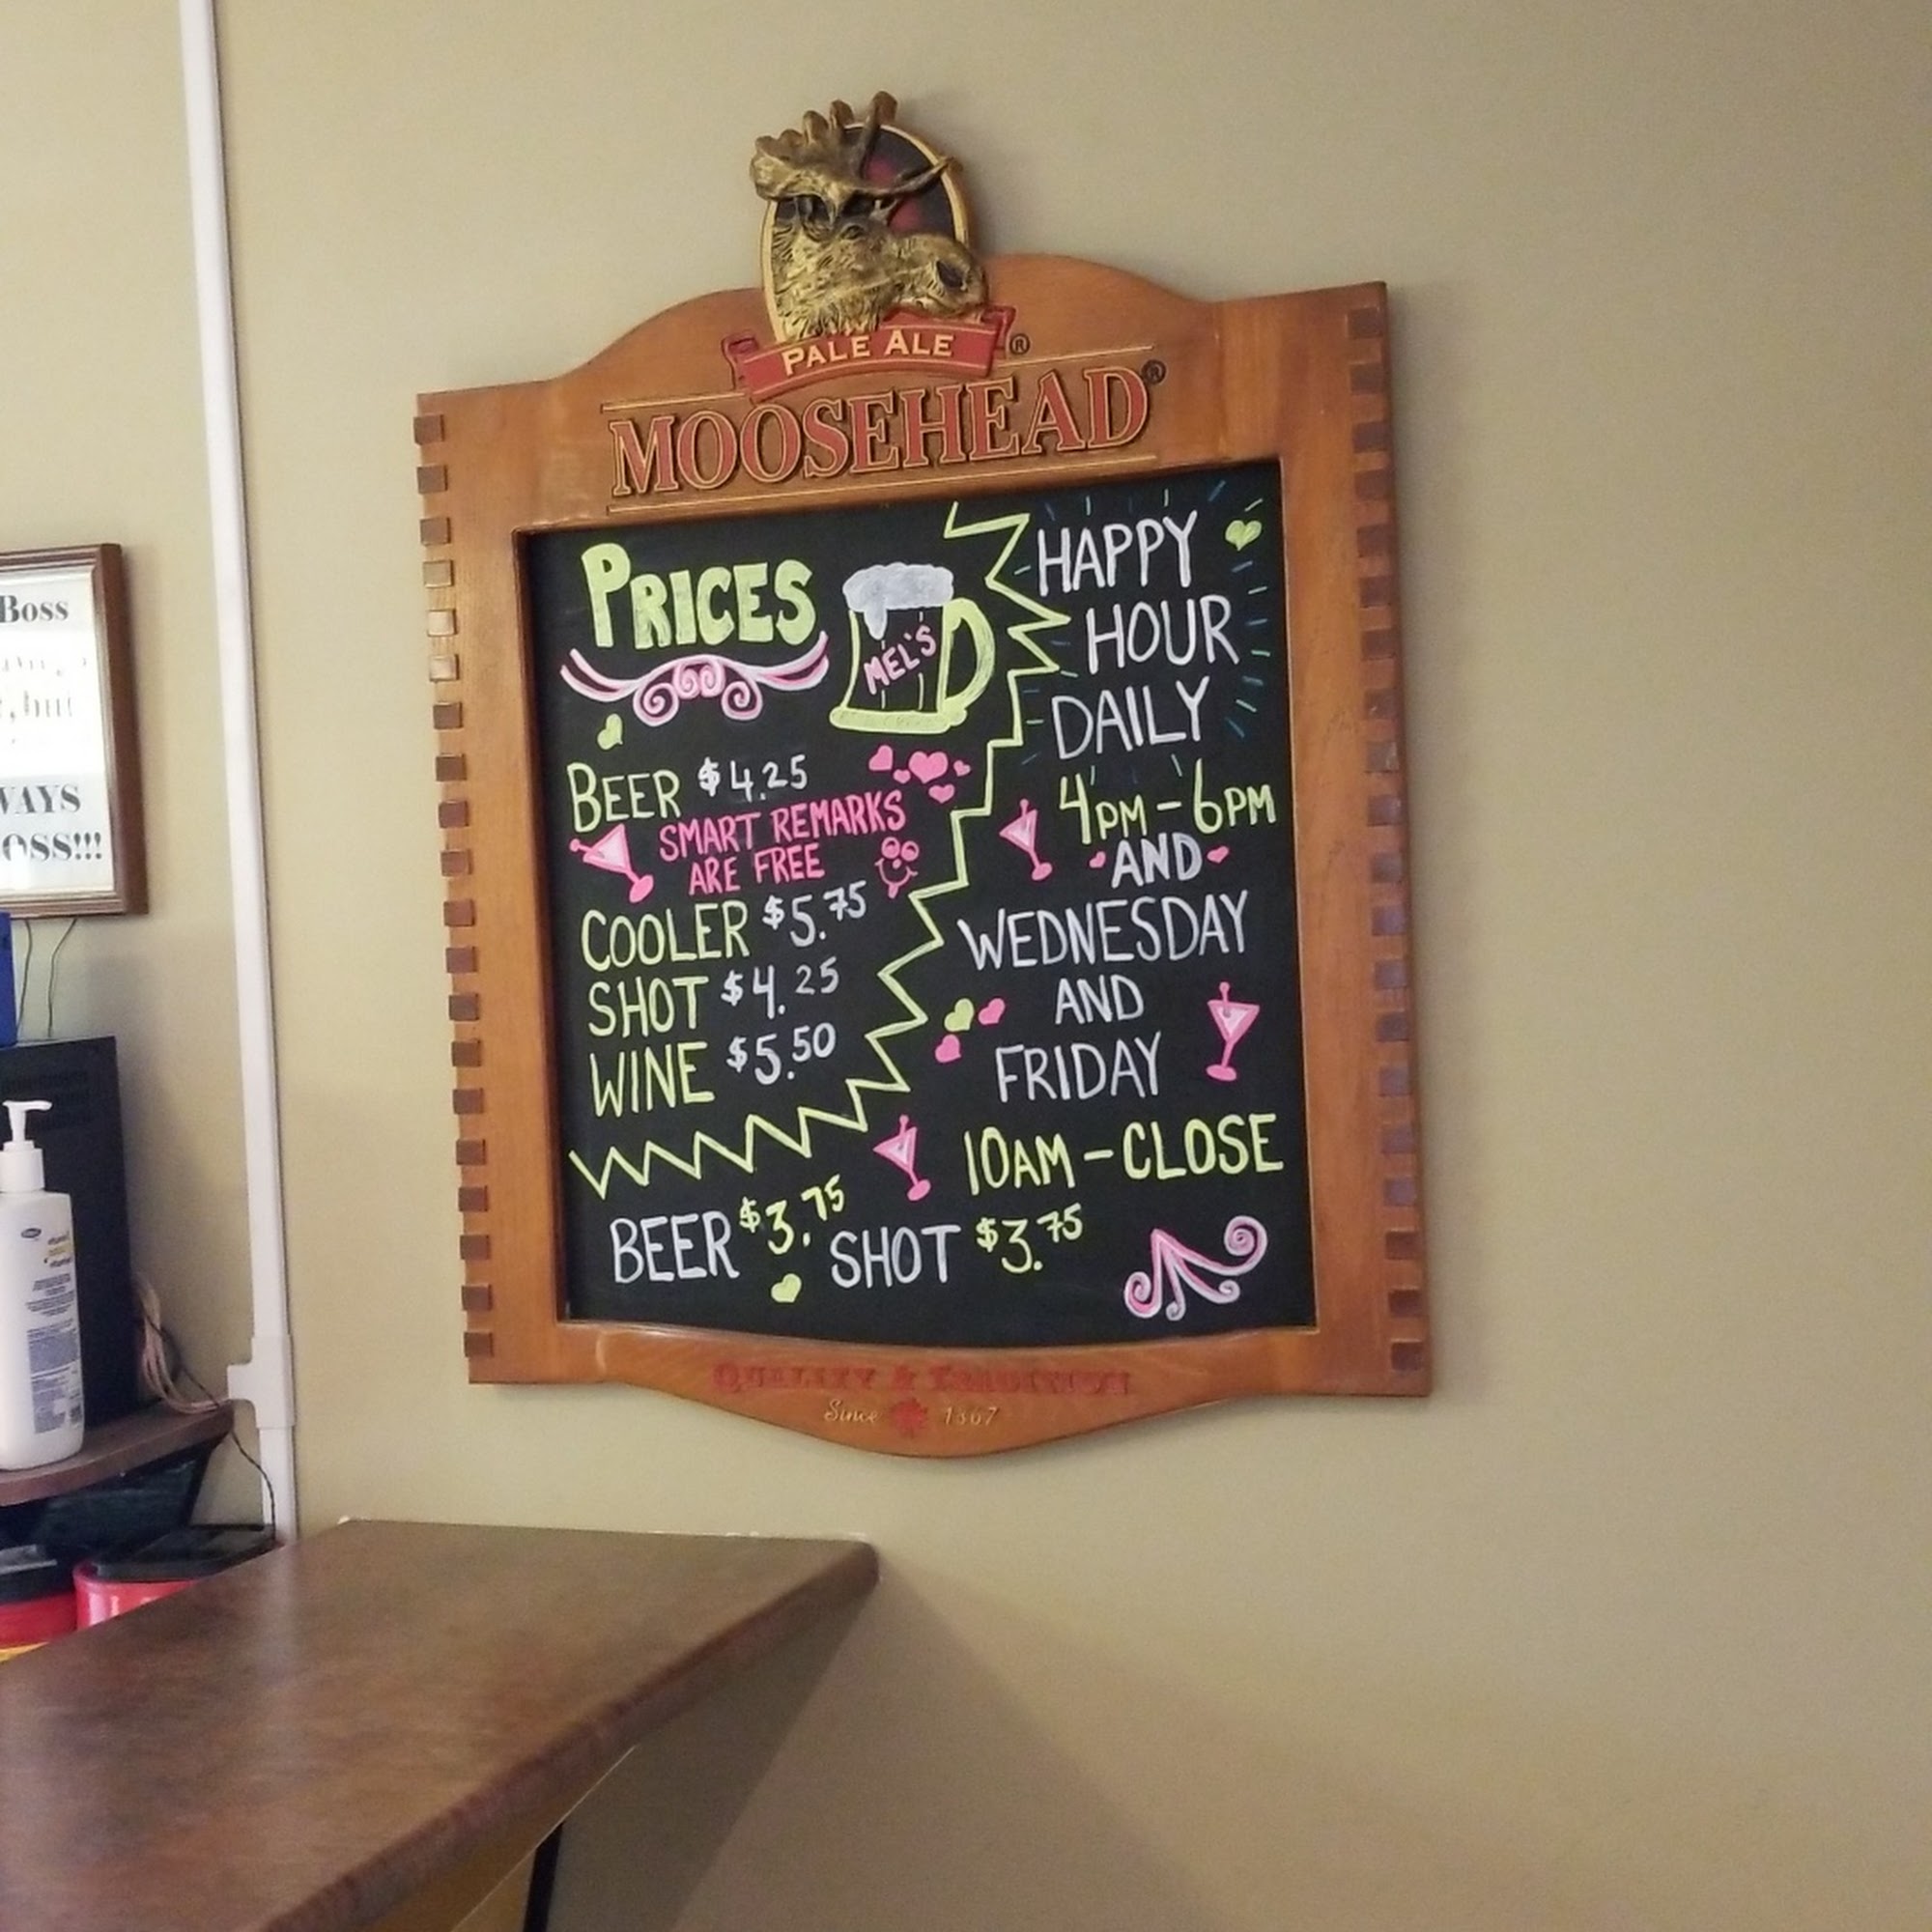 PALE ALE ®
MOOSEHEAD®
PRICES
MEL'S
BEER $4.25
SMART REMARKS
ARE FREE
COOLER $5.75
SHOT $4.25
WINE $5.50
HAPPY
HOUR
DAILY
4PM-6PM
AND
WEDNESDAY
AND
FRIDAY
10AM-CLOSE
BEER $3.75 SHOT $3.75
QUALITY & TRADITION
Since 1867
Boss
but
OSS!!!